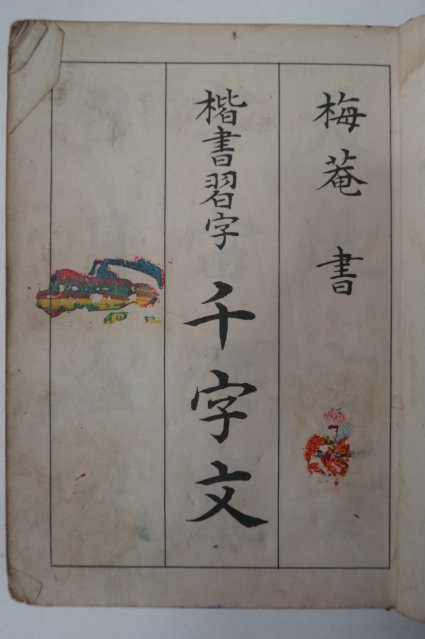 梅菴書
楷書習字千字文